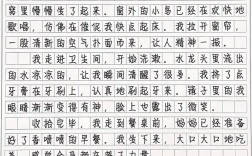 窗里慢慢生了起来。窗外的小鸟已经在欢快地
歌唱，仿佛在催促我快点起床。我拉开窗帘，
一股清新的空气扑面而来，让人精神一振。
我走进卫生间，开始洗漱。水龙头里流出
的水凉凉的，让我瞬间清醒了很多。我挤了
牙膏在牙刷上，认真地刷起牙来。镜子里的我
眼睛渐渐变得有神，脸上也露出了微笑。
收拾完毕，我走到餐桌前，妈妈已经准备
好了香喷喷的早餐。我坐下来，大口大口地吃